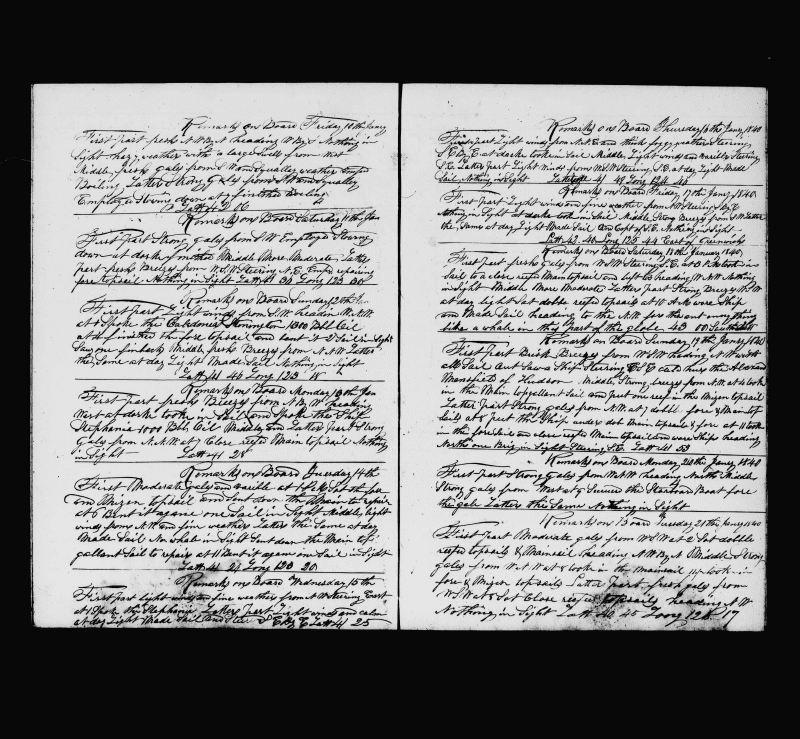 Remarks on Board Friday 10th Jany
First part fresh NWBN heading WBS Nothing in
Sight hazy weather with a large Swell from West
Middle fresh gales from S W and Squally weather Empd
Boiling Latter Strong gales from SW and Squally
Employed Stowing down at finished Boiling
Latt 42 16
Remarks on Board Saturday 11th Jan
First part Strong gales from S.W Employed Stowing
down at dark finished Middle More Moderate Latter
part fresh Breeze from W.S.W Steering N.E. Empd repairing
fore topsail Nothing in Sight Latt 41 00 Long 123 00
Remarks on Board Sunday 12th Jan
First part Light winds from S.W. headin W.N.W.
at Spoke the Stonington 1300 Bbl Oil
at finished the fore topsail and bent it 2 Sail in Sight
Saw one finback Middle fresh Breeze from N.N.W Latter
the Same at day Light Made Sail Nothing in Sight
Latt 41 46 Long 123 18
Remarks on Board Monday 13th Jan
First part fresh Breeze from N.B.W heading
West at dark took in Sail and Spoke the Ship
Stephania 1000 Bbl Oil Middle and Latter part Strong
Gales from N.N.W at Close reefed Main topsail Nothing
in Sight Latt 41 28
Remarks on Board Tuesday 14th
First Moderate gales and varible at P.M. Sent the fore
and Mizen topsail and Sent down the Main to repair
at 6 Bent it again one Sail in Sight Middle light
winds from N.W and fine weather Latter the Same at day
Made Sail No whale in Sight Sent down the Main top
gallent Sail to repair at 11 Bent it again one Sail in Sight
Latt 41 27 Long 123 20
Remarks on Board Wednesday 15th
First part Light winds and fine weather from N W Steering East
at Spoke the Stephania Latter part Light winds and calm
at day Light Made Sail and Steer S E By E Latt 41 25
Remarks on Board Thursday 16th Jany 1840
First part Light winds from N.E and thick foggy weather Steering
S.E.By.E at dark took in Sail Middle Light winds and varible Steering
S.E. Latter part Light Winds from W.S.W Steering S.E. at day Light Made
Sail Nothing in Sight Long 124 48
Remarks on Board Friday 17th Jany 1840
First part Light winds and fine weather from N.W Steering S.By.E
Nothing in Sight at dark took in Sail Middle Strong Breeze from S.W Latter
the Same at day Light Made Sail and Kept of S.E. Nothing in Sight
Latt 42 40 Long 125 44 East of Greenwich
Remarks on Board Saturday 18th January 1840
First part fresh gales from W.S.W Steering S.E. at 8 P.M took in
Sail to a close reefed Main topsail and left to heading N.N.W Nothing
in Sight Middle More Moderate Latter part Strong Breeze W.S.W
at day light Set doble reefed topsails at 10 A.M wore Ship
and Made Sail heading to the for the ent enything
like a whale in this part of the globe 43 00 South Latt
Remarks on Board Sunday 19th Jany 1840
First part Brisk Breeze from W.S.W heading N.W
M Sail and Saw a Ship Steering E.S.E calld hur the Alexand
Mansfield of Hudson Middle Strong breeze from N.W. at took
in the Main topgallent Sail and put one reef in the Mizen topsail
Latter part Strong gales from N.W at 7 dobl. fore & Main top
Sails at put the Ship under dob Main topsails & fore at 11 took
in the foresail and close reefed Main topsail and wore Ship heading
North one Brig in Sight Steering S.E. Latt 41 53
Remarks on Board Monday 20th Jany 1840
First part Strong Gales from W.N.W heading North Middle
Strong gales from West at 9 the Starbord Boat fore
the gale Latter the Same Nothing in Sight
Remarks on Board Tuesday 21th Jany 1840
First part Moderate gales from W.S.W at 2 Set dobble
reefed topsails & Mainsail heading N.W.By.N Middle Strong
gales from W at took in the Mainsail took in
fore & Mizen topsails Latter part fresh gales from
W.S.W at 8 Set Close reefed topsails heading N.W
Nothing in Sight Latt 40 45 Long 128 17